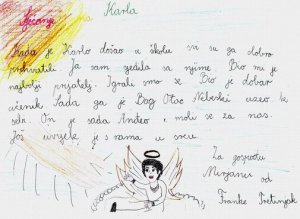 Sjećanje Karla
Kada je Karlo došao u školu svi su ga dobro
prihvatili. Ja sam sjedila sa njime. Bio mi je
najbolji prijatelj. Igrali smo se. Bio je dobar
učenik. Sada ga je Bog Otac Nebeski uzeo k
sebi. On je sada Anđeo i moli se za nas.
Još uvijek je s nama u srcu.
Za gospođu
Mirjanu od
Franke